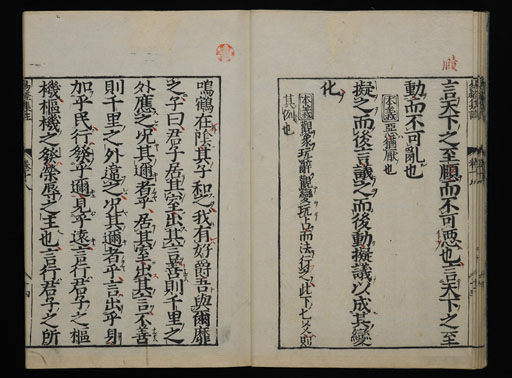 言天下之至賾而不可惡也言天下之至
動而不可亂也
本義惡猶厭也
擬之而後言議之而後動擬議以成其變
化
本義觀象玩辭觀變玩占而法行之此下七爻則
其例也
鳴鶴在陰其子和之我有好爵吾與爾靡
之子曰君子居其室出其言善則千里之
外應之况其邇者乎居其室出其言不善
則千里之外違之况其邇者乎言出乎身
加乎民行發乎邇見乎遠言行君子之樞
機樞機之發榮辱之主也言行君子之所